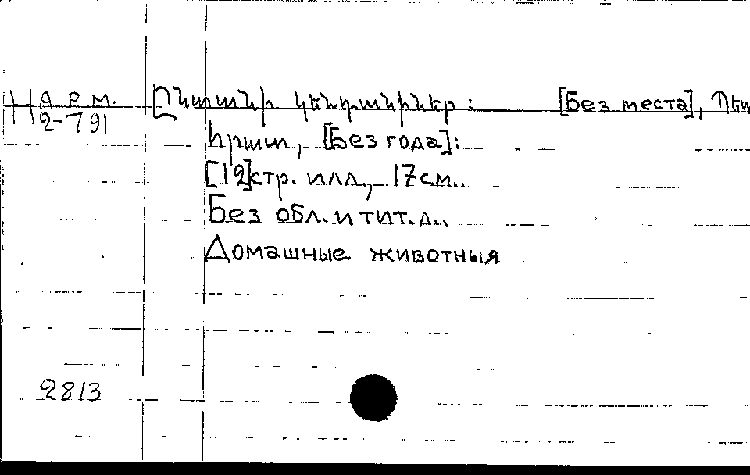 Арм.
2-791
Ընտանի կենդանիներ: [Без места], Պետ
հրատ, [Без года]:
[12]стр. илл., 17см.
Без обл. и тит. л.
Домашные животныя
2813